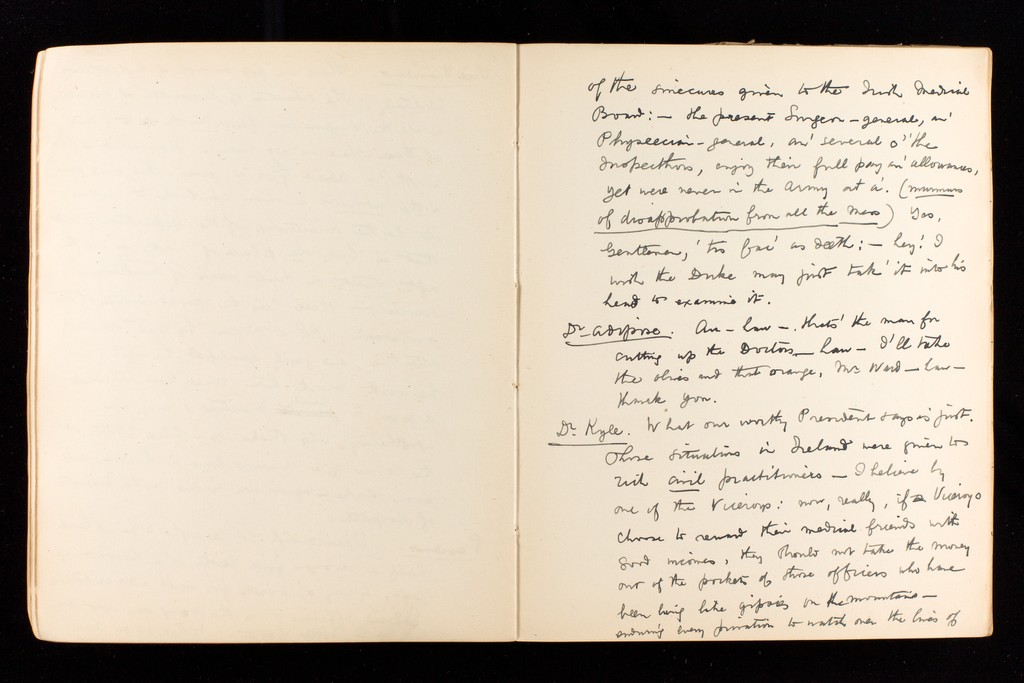 of the sinecures given to the Irish Medical
Board:— the present Surgeon-general, an'
Physeecian-general, an' several o' the
Inspecthors, enjoy their full pay an' allowances,
yet were never in the army at a'. (murmurs
of disapprobation from all the mess) Yas,
Gentlemen, 'tis fac' as death:— hey! I
wish the Duke may just tak' it into his
head to examine it.
Dr. Adipose. Aw—law—. that's the man for
cutting up the Doctors—law— I'll take
the olives and that orange, Mr. Ward—law—
thank you.
Dr. Kyle. What our worthy President says is just.
Those situations in Ireland were given to
rich civil practitioners — I believe by
one of the Viceroys: now, really, if Viceroys
choose to reward their medical friends with
good incomes, they should not take the money
out of the pockets of those officers who have
been living like gipsies on the mountains—
enduring every privation to watch over the lives of